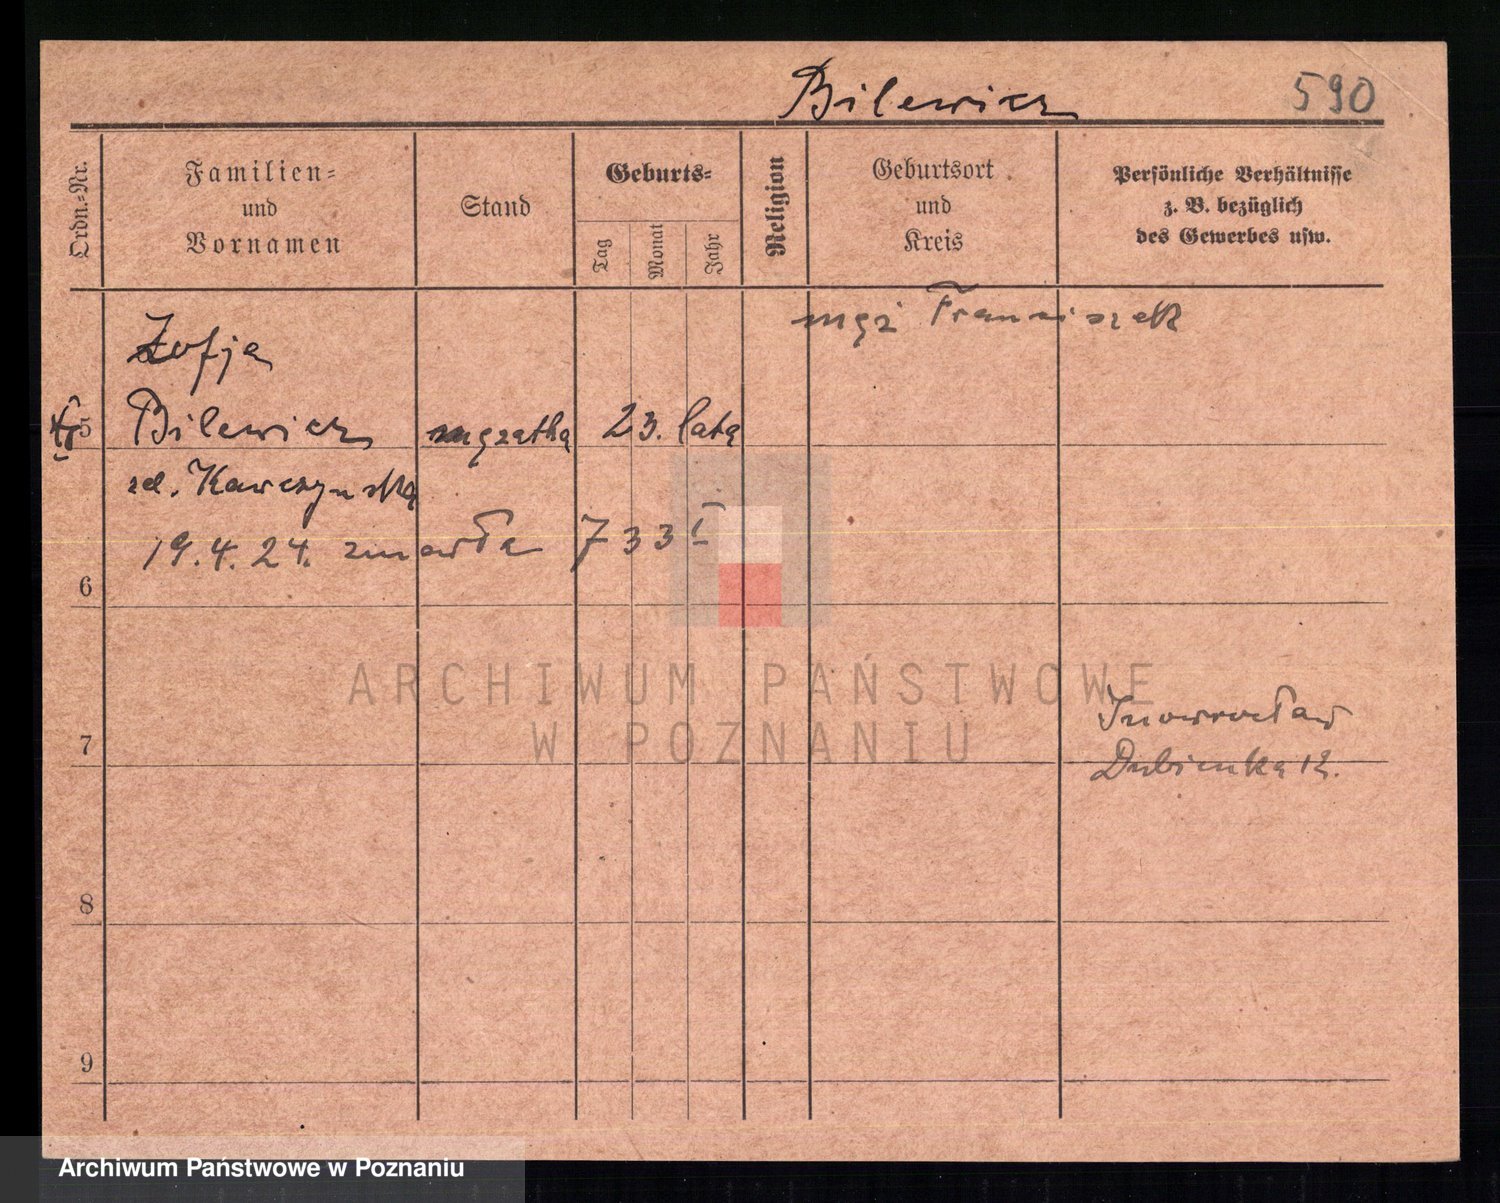 Bilewicz 590
Ordn.-Nr.
Familien-
und
Vornamen
Stand
Geburts-
Tag
Monat
Jahr
Religion
Geburtsort
und
Kreis
Persönliche Verhältnisse
z. B. bezüglich
des Gewerbes usw.
mąż Franciszek
Zofja
5 Bilewicz mężatka 23. lata
zd. Kawczyńska
19.4.24. zmarła 733 I
6
ARCHIWUM PAŃSTWOWE
W POZNANIU
Inowrocław
7
Dubienka 12.
8
9
Archiwum Państwowe w Poznaniu